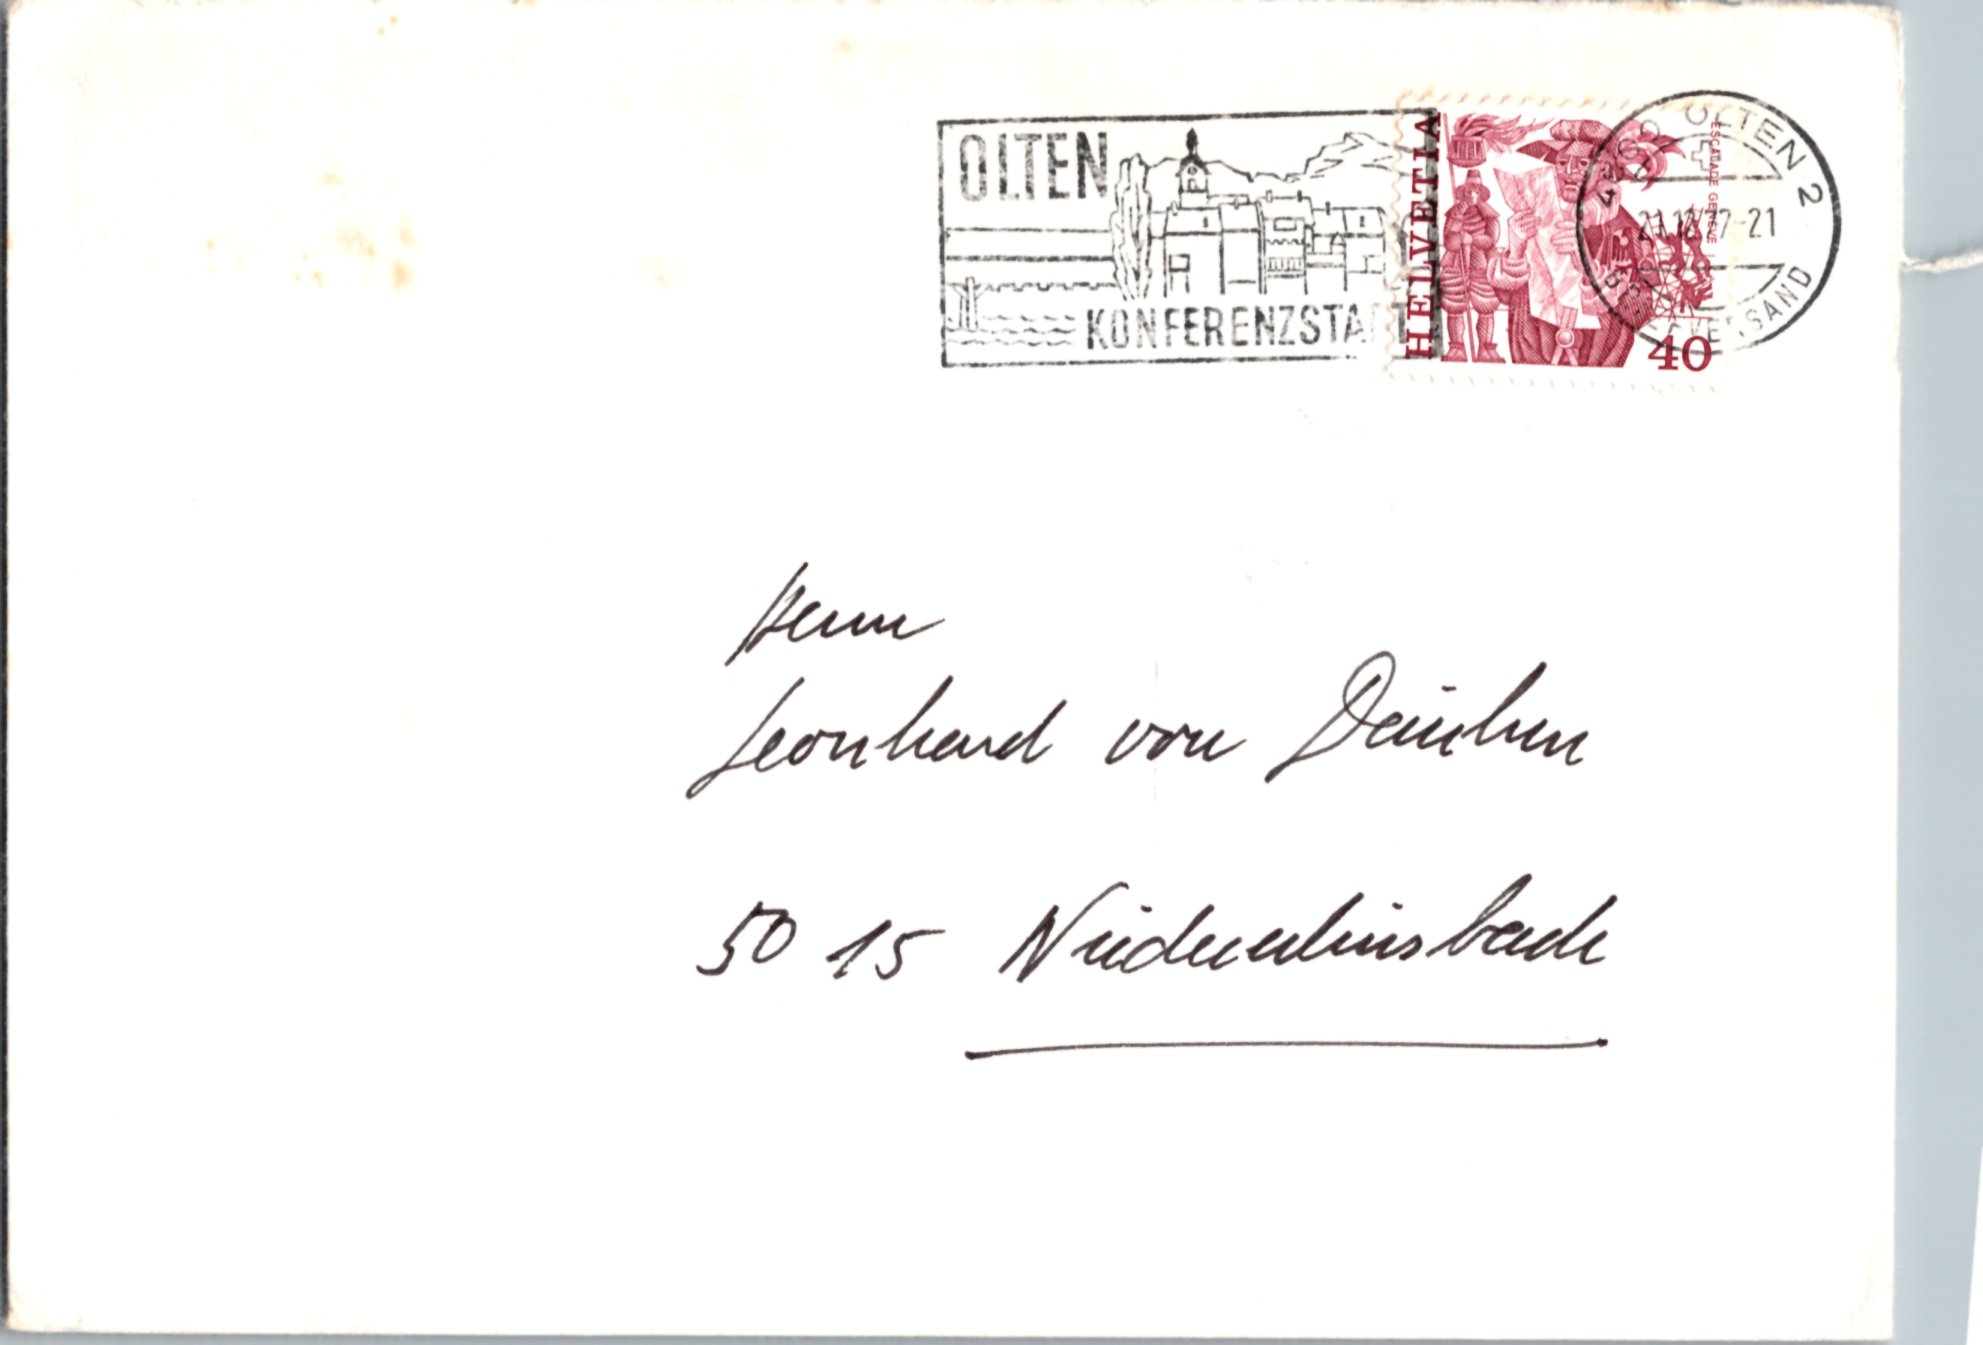 OLTEN
KONFERENZSTADT
HELVETIA
ESCALADE GENÈVE
40
4600 OLTEN 2
21.12.77-21
BRIEFVERSAND
Herrn
Leonhard von Däniken
5015 Niedererlinsbach